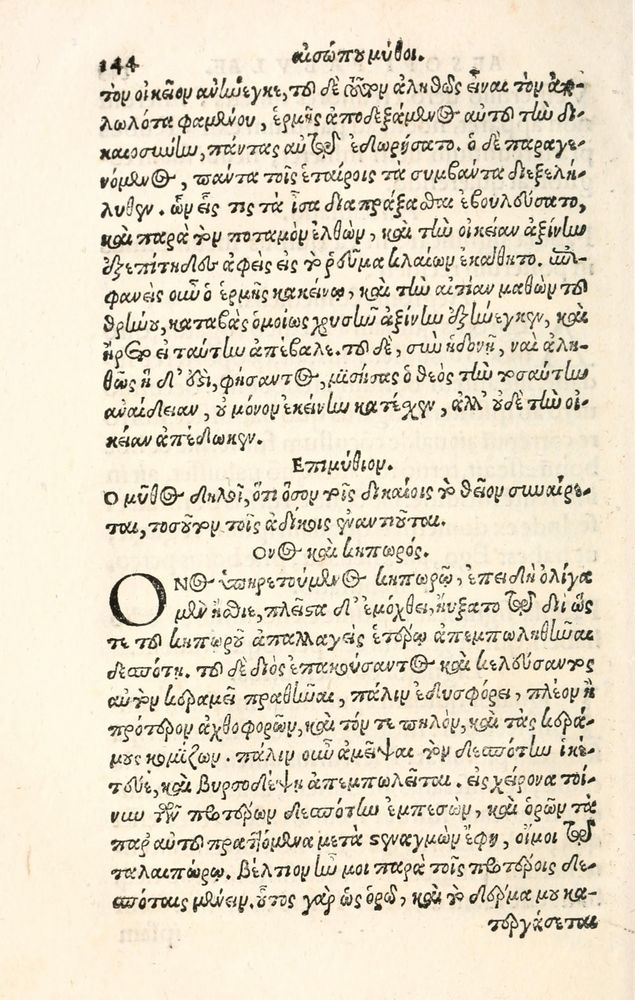 144 αἰσώπου μῦθοι.
τὸν οἰκεῖον ἀνήνεγκε, τοῦ δὲ τοῦτον ἀληθῶς εἶναι τὸν ἀπο-
λωλότα φαμένου, ἑρμῆς ἀποδεξάμενος αὐτοῦ τὴν δι-
καιοσύνην, πάντας αὐτῷ ἐδωρήσατο. ὁ δὲ παραγε-
νόμενος, πάντα τοῖς ἑταίροις τὰ συμβάντα διεξελή-
λυθεν. ὧν εἷς τις τὰ ἶσα διαπράξασθαι ἐβουλεύσατο,
καὶ παρὰ τὸν ποταμὸν ἐλθὼν, καὶ τὴν οἰκείαν ἀξίνην
ἐξεπίτηδες ἀφεὶς εἰς τὸ ῥεῦμα κλαίων ἐκάθητο. ἐπι-
φανεὶς οὖν ὁ ἑρμῆς κακείνῳ, καὶ τὴν αἰτίαν μαθὼν τοῦ
θρήνου, καταβὰς ὁμοίως χρυσῆν ἀξίνην ἐξήνεγκεν, καὶ
ἤρετο εἰ ταύτην ἀπέβαλε. τοῦ δὲ, σὺν ἡδονῇ, ναὶ ἀλη-
θῶς ἥδ' ἐστὶ, φήσαντος, μισήσας ὁ θεὸς τὴν τοσαύτην
ἀναίδειαν, οὐ μόνον ἐκείνην κατέχεν, ἀλλ' οὐδὲ τὴν οἰ-
κείαν ἀπέδωκεν.
Ἐπιμύθιον.
Ὁ μῦθος δηλοῖ, ὅτι ὅσον τοῖς δικαίοις τὸ θεῖον συναίρε-
ται, τοσοῦτον τοῖς ἀδίκοις ἐναντιοῦται.
Ὄνος καὶ κηπωρός.
ΟΝος ὑπηρετούμενος κηπωρῷ, ἐπειδὴ ὀλίγα
μὲν ἤσθιε, πλεῖστα δ' ἐμόχθει, ηὔξατο τῷ διὶ ὥς
τε τοῦ κηπωροῦ ἀπαλλαγεὶς ἑτέρῳ ἀπεμπωληθῆναι
δεσπότῃ. τοῦ δὲ διὸς ἐπακούσαντος καὶ κελεύσαντος
αὐτὸν κεραμεῖ πραθῆναι, πάλιν ἐδυσφόρει, πλέον ἢ
πρότερον ἀχθοφορῶν, καὶ τόν τε πηλὸν, καὶ τὰς κερά-
μους κομίζων. πάλιν οὖν ἀμεῖψαι τὸν δεσπότην ἱκέ-
τευε, καὶ βυρσοδέψῃ ἀπεμπωλεῖται. εἰς χείρονα τοί-
νυν τῶν προτέρων δεσπότην ἐμπεσὼν, καὶ ὁρῶν τὰ
παρ' αὐτοῦ πραττόμενα μετὰ στεναγμῶν ἔφη, οἴμοι τῷ
ταλαιπώρῳ. βέλτιον ἦν μοι παρὰ τοῖς προτέροις δε-
σπόταις μένειν. οὗτος γὰρ ὡς ὁρῶ, καὶ τὸ δέρμα μου κα-
τεργάσεται